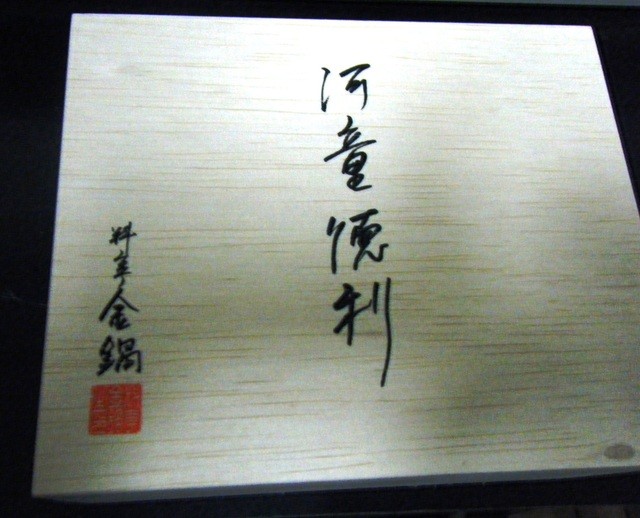 河童徳利
料亭金鍋